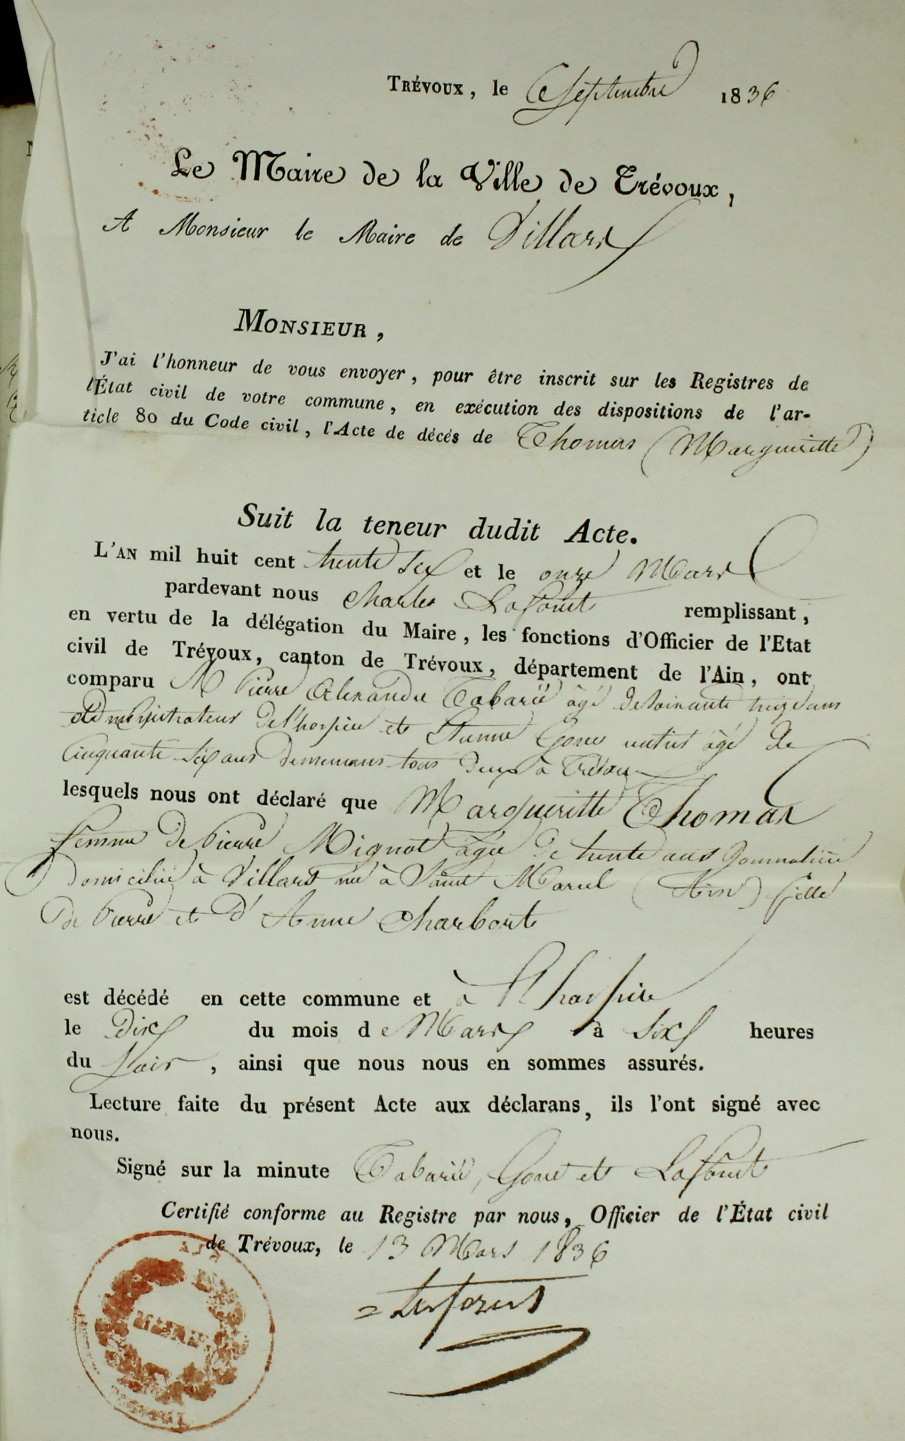 Trévoux, le 6 Septembre 1836
Le Maire de la Ville de Trévoux,
A Monsieur le Maire de Villars
Monsieur,
J'ai l'honneur de vous envoyer, pour être inscrit sur les Registres de
l'État civil de votre commune, en exécution des dispositions de l'ar-
ticle 80 du Code civil, l'Acte de décès de Thomas (Margueritte)
Suit la teneur dudit Acte.
L'an mil huit cent trente six et le onze Mars
pardevant nous Charles Lafont remplissant,
en vertu de la délégation du Maire, les fonctions d'Officier de l'Etat
civil de Trévoux, canton de Trévoux, département de l'Ain, ont
comparu M Pierre Alexandre Tabarié âgé de soixante treize ans
administrateur de l'hospice et Etienne âgé de
cinquante six ans demeurans tous deux à Trévoux
lesquels nous ont déclaré que Margueritte Thomas
femme de Pierre Mignot âgée de trente ans Journalière
domiciliée à Villars née à Saint Marcel (Ain) fille
de Pierre et d'Anne Charbont
est décédé en cette commune et à l'hospice
le Dix du mois de Mars à Six heures
du soir, ainsi que nous nous en sommes assurés.
Lecture faite du présent Acte aux déclarans, ils l'ont signé avec
nous.
Signé sur la minute Tabarié, Gone et Lafont
Certifié conforme au Registre par nous, Officier de l'État civil
de Trévoux, le 13 Mars 1836
MAIRIE